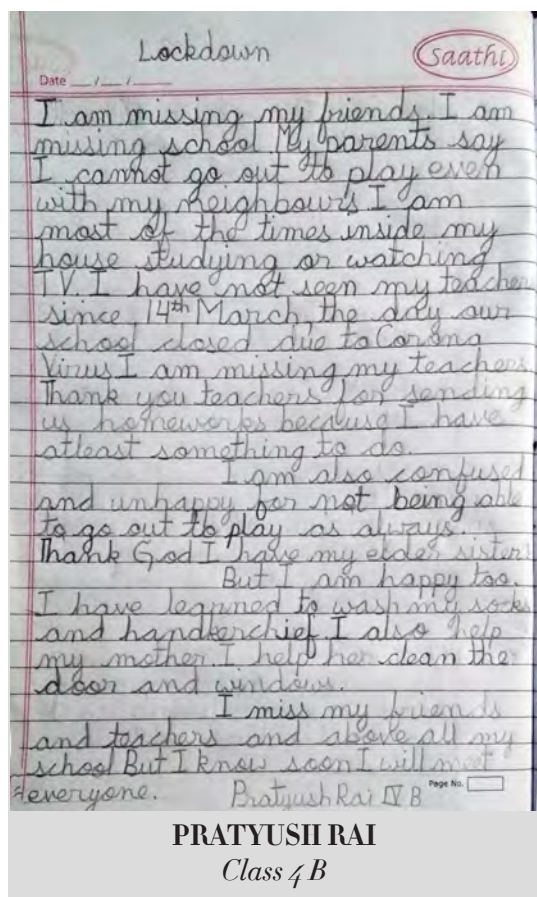 Lockdown
Saathi
Date __/__/__
I am missing my friends. I am
missing school. My parents say
I cannot go out to play even
with my neighbours I am
most of the times inside my
house studying or watching
TV. I have not seen my teacher
since 14th March, the day our
school closed due to Corona
Virus I am missing my teachers
Thank you teachers for sending
us homeworks because I have
atleast something to do.
I am also confused
and unhappy for not being able
to go out to play as always.
Thank God I have my elder sister
But I am happy too.
I have learned to wash my socks
and handkerchief. I also help
my mother. I help her clean the
door and windows.
I miss my friends
and teachers and above all my
school But I know soon I will meet
everyone. Pratyush Rai IV B
Page No.
PRATYUSH RAI
Class 4 B